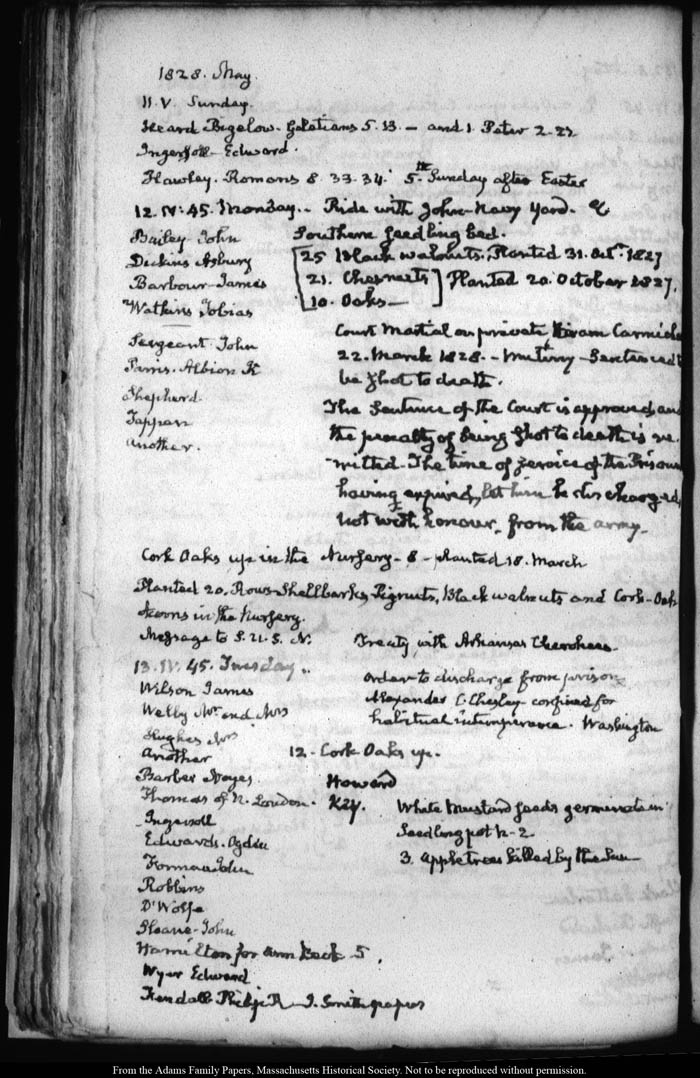 1828. May.
11. V. Sunday.
Heard Bigelow. Galatians 5. 13. — and 1. Peter 2. 22
Ingersoll- Edward.
Hawley. Romans 8. 33. 34. 5th Sunday after Easter
12. IV: 45. Monday.. Ride with John- Navy Yard. &
Bailey John Southern Seedling bed.
Dickins Asbury 25 Black walnuts. Planted 31. Octr. 1827
Barbour James 21. Chesnuts Planted 20. October 1827.
Watkins Tobias 10. Oaks—
Sergeant John Court Martial on private Hiram Carmich
Parris. Albion K 22. March 1828. — Mutiny — Sentenced t
Shepherd be shot to death.
Tappan The Sentence of the Court is approved, and
Another. the penalty of being shot to death is re-
mitted. The time of service of the Prisoner
having expired, let him be discharged,
not with honour, from the army.
Cork Oaks up in the Nursery — 8 — planted 18. March
Planted 20. Rows Shellbarks, Pignuts, Black walnuts and Cork-Oak
Acorns in the Nursery.
Message to S. U. S. N. Treaty with Arkansas Cherokees.
13. IV. 45. Tuesday.. order to discharge from prison
Wilson James Alexander C. Chesley confined for
Welby Mr. and Mrs habitual intemperance. Washington
Hughes Mrs
Another 12. Cork Oaks up.
Barber Noyes. Howard
Thomas of N. London. Key. White Mustard seeds germinate in
Ingersoll Seedling pot N. 2
Edwards. Ogden 3. Apple trees killed by the Sun
Forman John
Robbins
D'Wolfe
Sloane-John
Hamilton for Ann 5.
Wyer Edward
Kendall Philip R — J. Smith papers
From the Adams Family Papers, Massachusetts Historical Society. Not to be reproduced without permission.